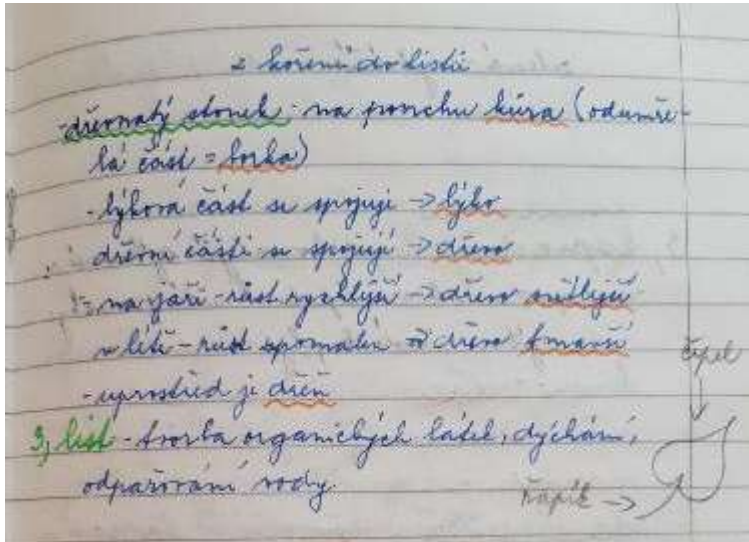 z kořenů do listů
-dřevnatý stonek - na povrchu kůra (odumře-
lá část = borka)
- lýková část se spojuje -> lýko
dřevní části se spojují -> dřevo
na jaře - růst rychlejší -> dřevo světlejší
v létě - růst zpomalen -> dřevo tmavší
- uprostřed je dřeň
čepel
3, list - tvorba organických látek, dýchání,
odpařování vody
řapík ->